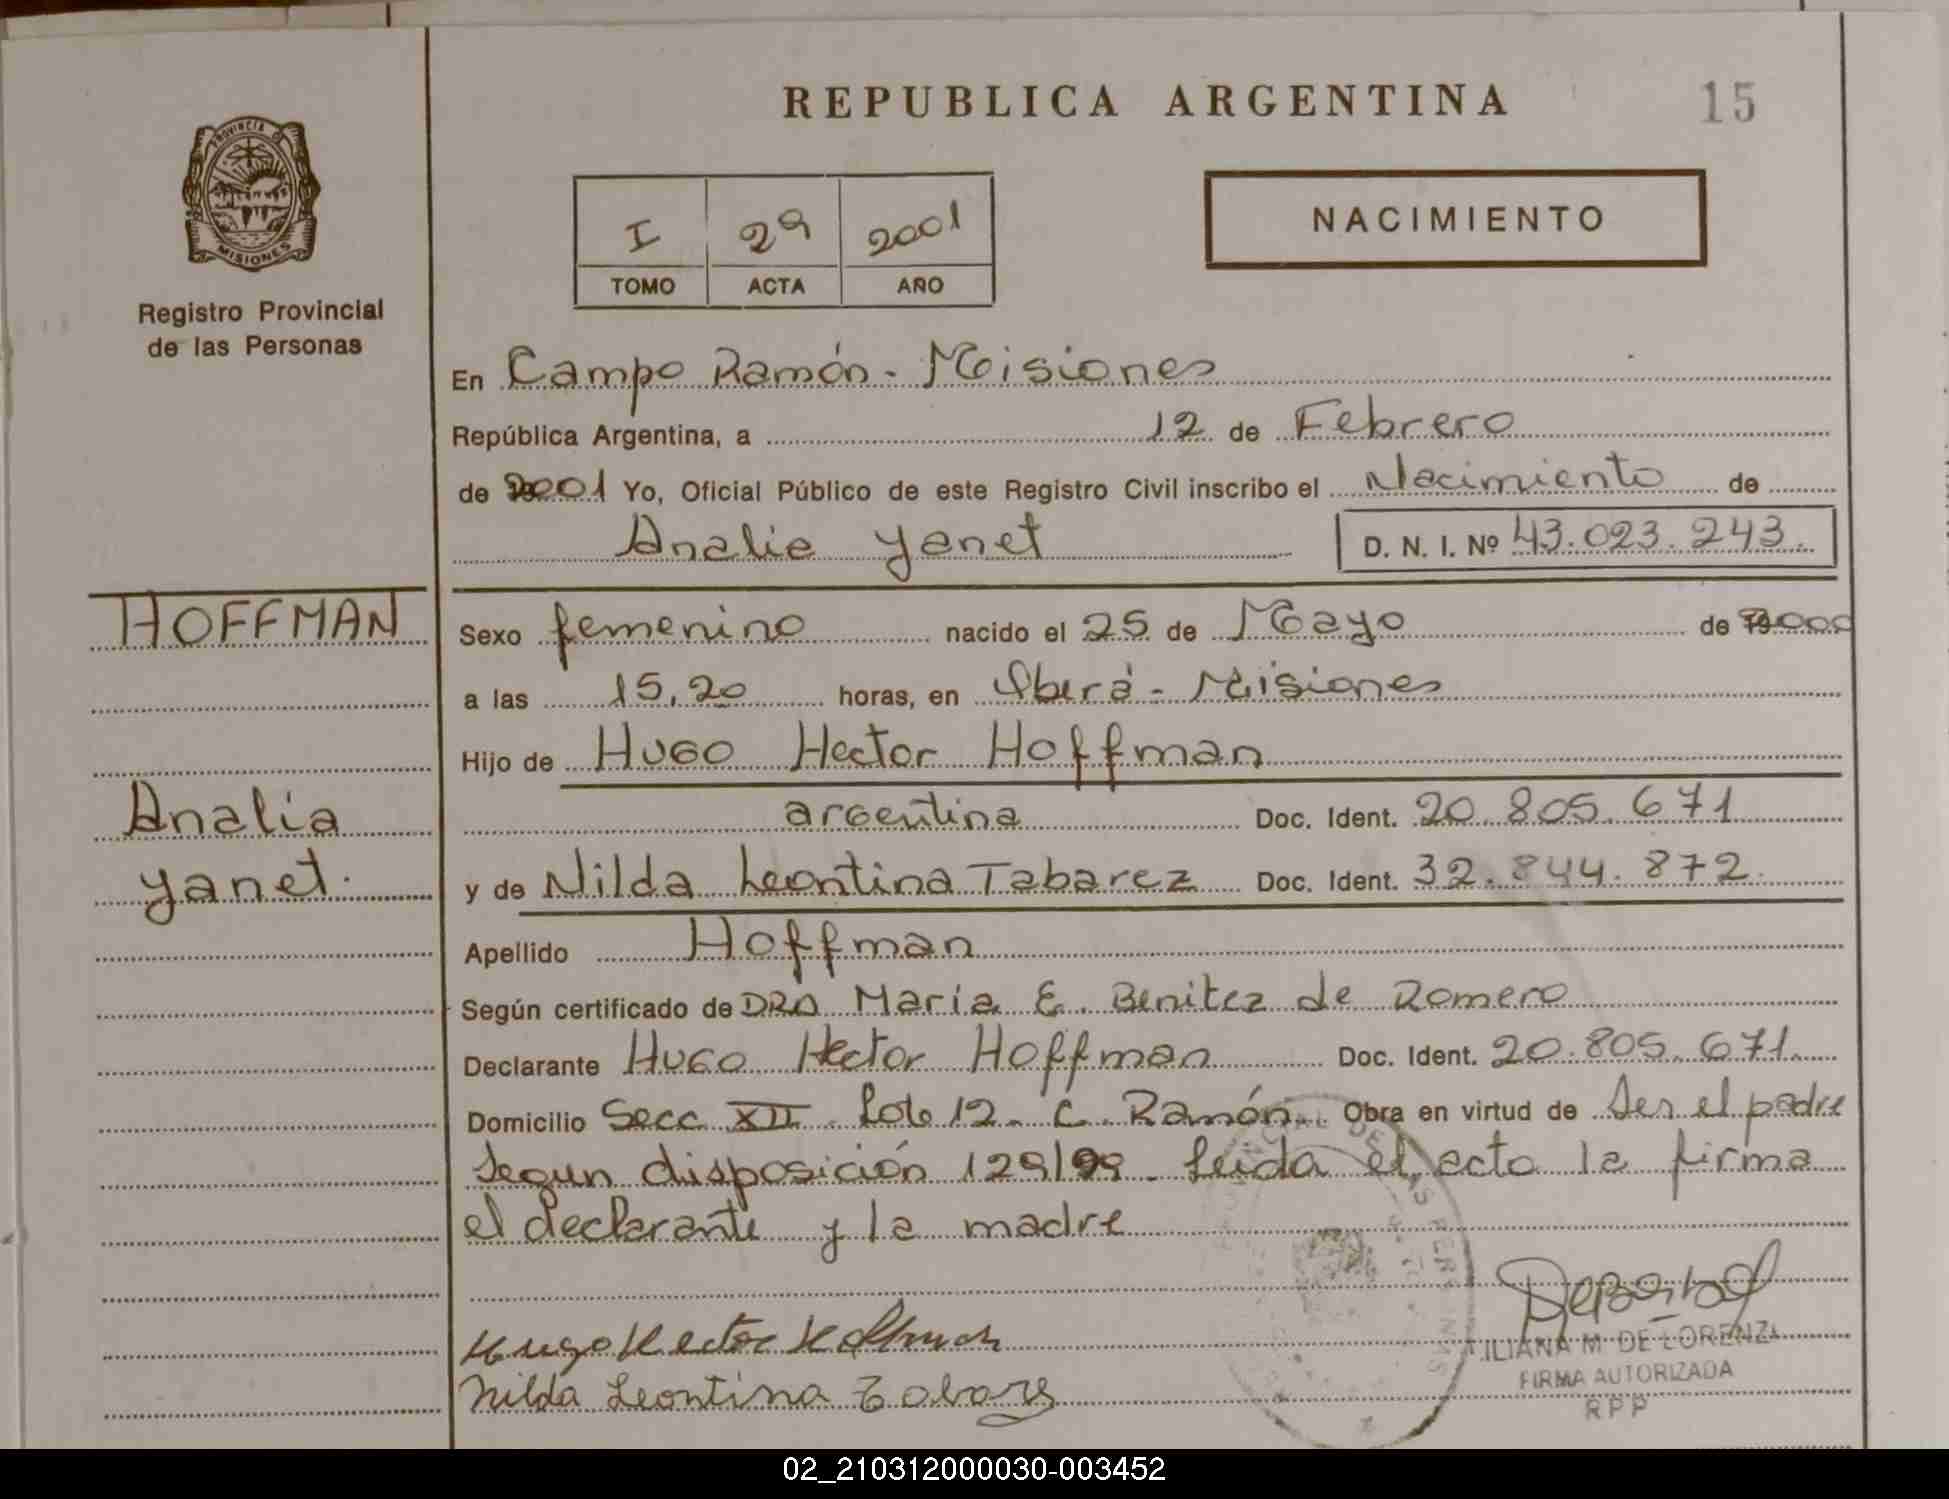 REPUBLICA ARGENTINA
15
PROVINCIA DE
MISIONES
Registro Provincial
de las Personas
I 29 2001
TOMO ACTA AÑO
NACIMIENTO
En Campo Ramón - Misiones
República Argentina, a 12 de Febrero
de 2001 Yo, Oficial Público de este Registro Civil inscribo el Nacimiento de
Analia Yanet D. N. I. Nº 43.023.243.
HOFFMAN
Analia
Yanet.
Sexo femenino nacido el 25 de Mayo de 2000
a las 15,20 horas, en Iberá - Misiones
Hijo de Hugo Hector Hoffman
argentina Doc. Ident. 20.805.671
y de Nilda Leontina Tabarez Doc. Ident. 32.844.872.
Apellido Hoffman
Según certificado de DRA Maria E. Benitez de Romero
Declarante Hugo Hector Hoffman Doc. Ident. 20.805.671.
Domicilio Secc XII Lote 12 - C. Ramón. Obra en virtud de Ser el padre
Segun disposición 129/99 - Leida el acta la firma
el declarante y la madre
Hugo Hector Hoffman
Nilda Leontina Tabarez
LILIANA M. DE LORENZI
FIRMA AUTORIZADA
RPP
02_210312000030-003452